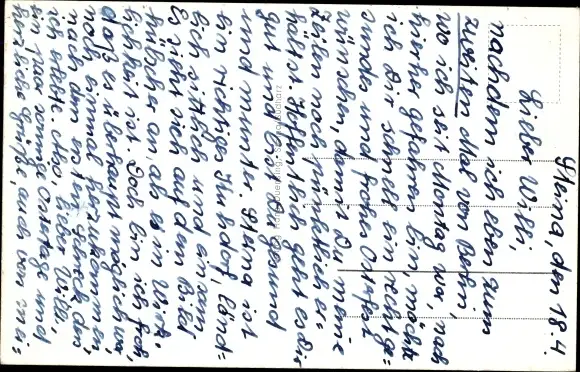 den 18.4.
Lieber Willi,
nachdem ich eben zum
zweiten Mal von Berlin,
wo ich seit Montag war, nach
hierher gefahren bin, möchte
ich Dir schnell ein recht ge=
sundes und frohes Osterfest
wünschen, damit Du meine
Zeilen noch pünktlich er=
hältst. Hoffentlich geht es Dir
gut und bist Du gesund
und munter. ist
ein richtiges Kuhdorf, länd=
lich sittlich und einsam.
Es sieht sich auf dem Bild
hübscher an, als es in Wirk-
lichkeit ist. Doch bin ich froh,
daß es überhaupt möglich war,
noch einmal herzukommen,
nach dem ersten Schreck, den
ich erlebte. Also, lieber Willi,
ein paar sonnige Ostertage und
herzliche Grüße, auch von mei=